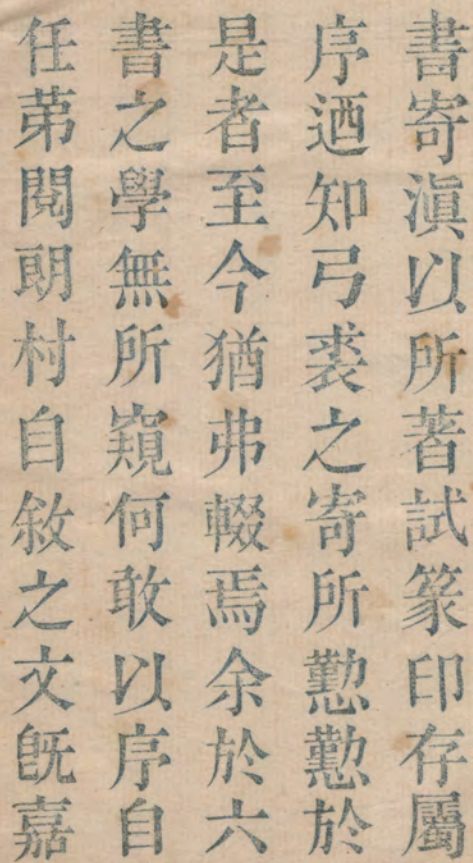 書寄滇以所著試篆印存屬
序迺知弓裘之寄所懃懃於
是者至今猶弗輟焉余於六
書之學無所窺何敢以序自
任苐閱朗村自敘之文旣嘉